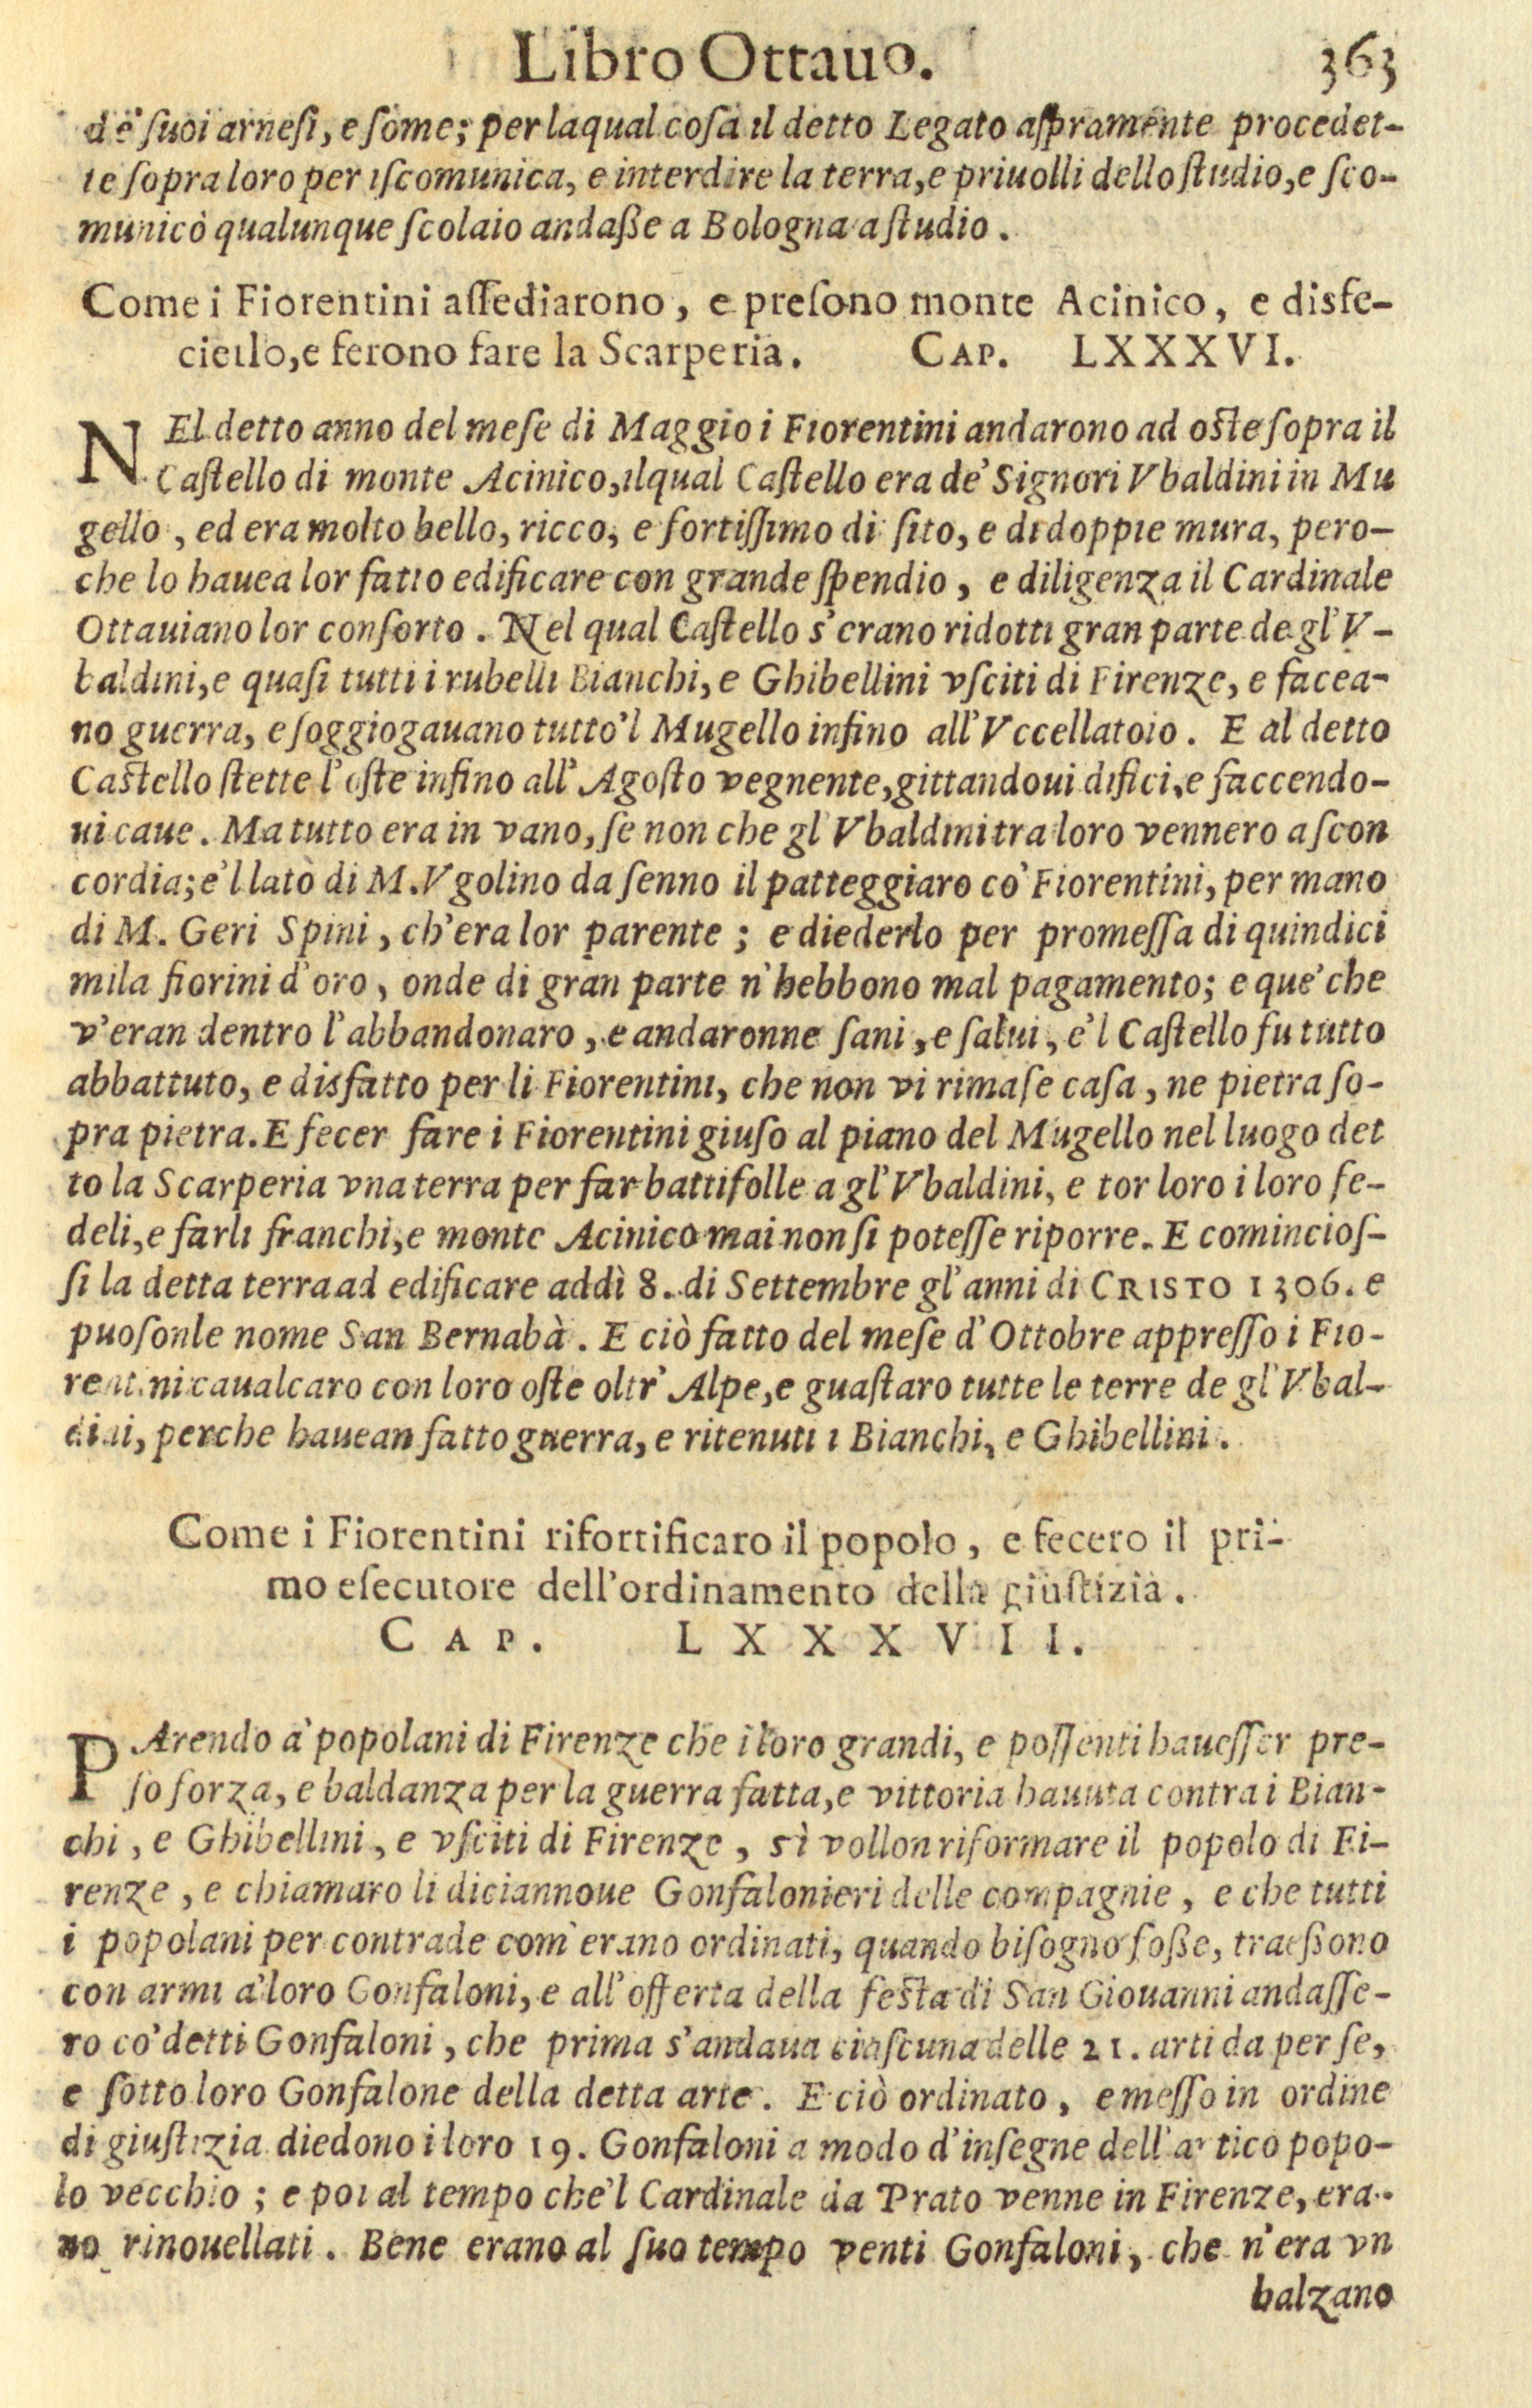 Libro Ottauo. 363
de' ſuoi arneſi, e ſome; per laqual coſa il detto Legato aſpramente procedet-
te ſopra loro per iſcomunica, e interdire la terra, e priuolli dello ſtudio, e ſco-
municò qualunque ſcolaio andaße a Bologna a ſtudio.
Come i Fiorentini aſſediarono, e preſono monte Acinico, e disfe-
cierlo, e ferono fare la Scarperia. CAP. LXXXVI.
NEl detto anno del meſe di Maggio i Fiorentini andarono ad oſte ſopra il
Caſtello di monte Acinico, ilqual Caſtello era de' Signori Vbaldini in Mu
gello, ed era molto bello, ricco, e fortiſſimo di ſito, e di doppie mura, pero-
che lo hauea lor fatto edificare con grande ſpendio, e diligenza il Cardinale
Ottauiano lor conſorto. Nel qual Caſtello s'erano ridotti gran parte de gl'V-
baldini, e quaſi tutti i rubelli Bianchi, e Ghibellini vſciti di Firenze, e facea-
no guerra, e ſoggiogauano tutto'l Mugello infino all'Vccellatoio. E al detto
Caſtello ſtette l'oſte infino all'Agoſto vegnente, gittandoui difici, e faccendo-
ui caue. Ma tutto era in vano, ſe non che gl'Vbaldini tra loro vennero a ſcon
cordia; e'l latò di M. Vgolino da ſenno il patteggiaro co' Fiorentini, per mano
di M. Geri Spini, ch'era lor parente; e diederlo per promeſſa di quindici
mila fiorini d'oro, onde di gran parte n'hebbono mal pagamento; e que' che
v'eran dentro l'abbandonaro, e andaronne ſani, e ſalui, e'l Caſtello fu tutto
abbattuto, e disfatto per li Fiorentini, che non vi rimaſe caſa, ne pietra ſo-
pra pietra. E fecer fare i Fiorentini giuſo al piano del Mugello nel luogo det
to la Scarperia vna terra per far battifolle a gl'Vbaldini, e tor loro i loro fe-
deli, e farli franchi, e monte Acinico mai non ſi poteſſe riporre. E comincioſ-
ſi la detta terra ad edificare addì 8. di Settembre gl'anni di CRISTO 1306. e
puoſonle nome San Bernabà. E ciò fatto del meſe d'Ottobre appreſſo i Fio-
rentini caualcaro con loro oſte oltr'Alpe, e guaſtaro tutte le terre de gl'Vbal-
dini, perche hauean fatto guerra, e ritenuti i Bianchi, e Ghibellini.
Come i Fiorentini rifortificaro il popolo, e fecero il pri-
mo eſecutore dell'ordinamento della giuſtizia.
CAP. LXXXVII.
PArendo a' popolani di Firenze che i loro grandi, e poſſenti haueſſer pre-
ſo forza, e baldanza per la guerra fatta, e vittoria hauuta contra i Bian-
chi, e Ghibellini, e vſciti di Firenze, sì vollon riformare il popolo di Fi-
renze, e chiamaro li diciannoue Gonfalonieri delle compagnie, e che tutti
i popolani per contrade com'erano ordinati, quando biſogno foße, traeßono
con armi a' loro Gonfaloni, e all'offerta della feſta di San Giouanni andaſſe-
ro co' detti Gonfaloni, che prima s'andaua ciaſcuna delle 21. arti da per ſe,
e ſotto loro Gonfalone della detta arte. E ciò ordinato, e meſſo in ordine
di giuſtizia diedono i loro 19. Gonfaloni a modo d'inſegne dell'antico popo-
lo vecchio; e poi al tempo che'l Cardinale da Prato venne in Firenze, era-
no rinouellati. Bene erano al ſuo tempo venti Gonfaloni, che n'era vn
balzano